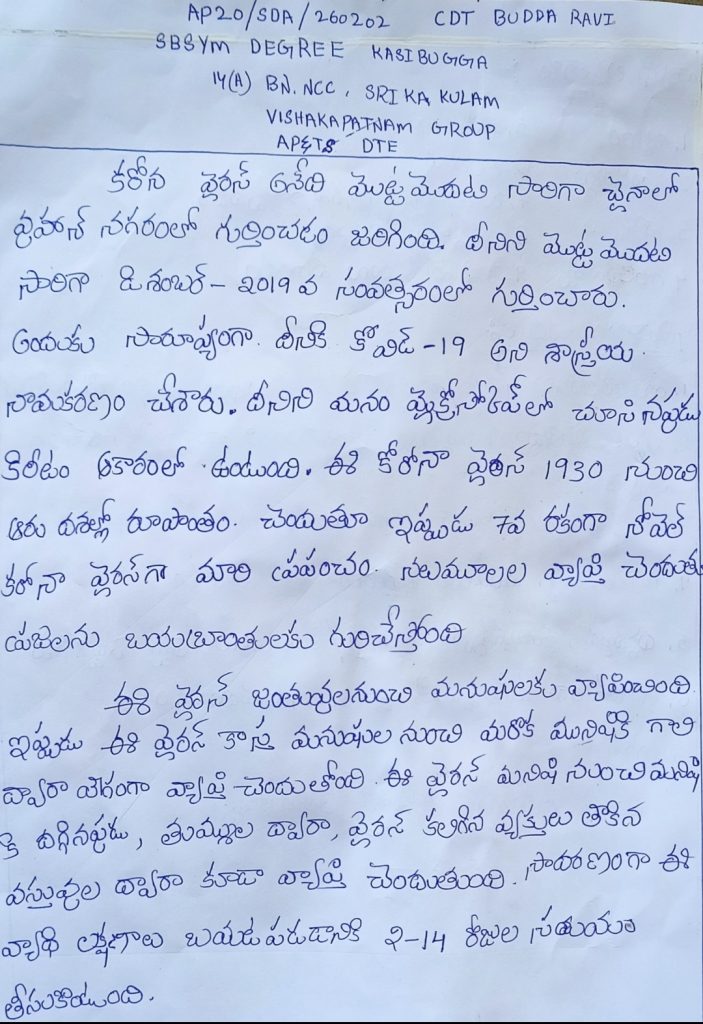 AP20/SDA/260202 CDT BUDDA RAVI
SBSYM DEGREE KASIBUGGA
14(A) BN. NCC, SRIKAKULAM
VISHAKAPATNAM GROUP
AP&TS DTE
కరోన వైరస్ అనేది మొట్టమొదటి సారిగా చైనాలో
వుహాన్ నగరంలో గుర్తించడం జరిగింది. దీనిని మొట్టమొదటి
సారిగా డిశంబర్ - 2019 వ సంవత్సరంలో గుర్తించారు.
అందుకు సారూప్యంగా. దీనికి కోవిడ్ -19 అని శాస్త్రీయ
నామకరణం చేశారు. దీనిని మనం మైక్రోస్కోప్ లో చూసినప్పుడు
కిరీటం ఆకారంలో ఉంటుంది. ఈ కోరోనా వైరస్ 1930 నుంచి
ఆరు దశల్లో రూపాంతం. చెందుతూ ఇప్పుడు 7వ రకంగా నోవెల్
కరోనా వైరస్‌గా మారి ప్రపంచం. నలుమూలల వ్యాప్తి చెందుతు
ప్రజలను బయబ్రాంతులకు గురిచేస్తోంది
ఈ వైరస్ జంతువులనుంచి మనుషులకు వ్యాపించింది.
ఇప్పుడు ఈ వైరస్ కాస్త మనుషుల నుంచి మరొక మునిషికి గాలి
ద్వారా వేగంగా వ్యాప్తి చెందుతోంది. ఈ వైరస్ మనిషి నుంచి మనిషి
కి దగ్గినప్పుడు, తుమ్ముల ద్వారా, వైరస్ కలిగిన వ్యక్తులు తాకిన
వస్తువుల ద్వారా కూడా వ్యాప్తి చెందుతుంది. సాదారణంగా ఈ
వ్యాధి లక్షణాలు బయట పడడానికి 2-14 రోజుల సమయం
తీసుకుంటుంది.